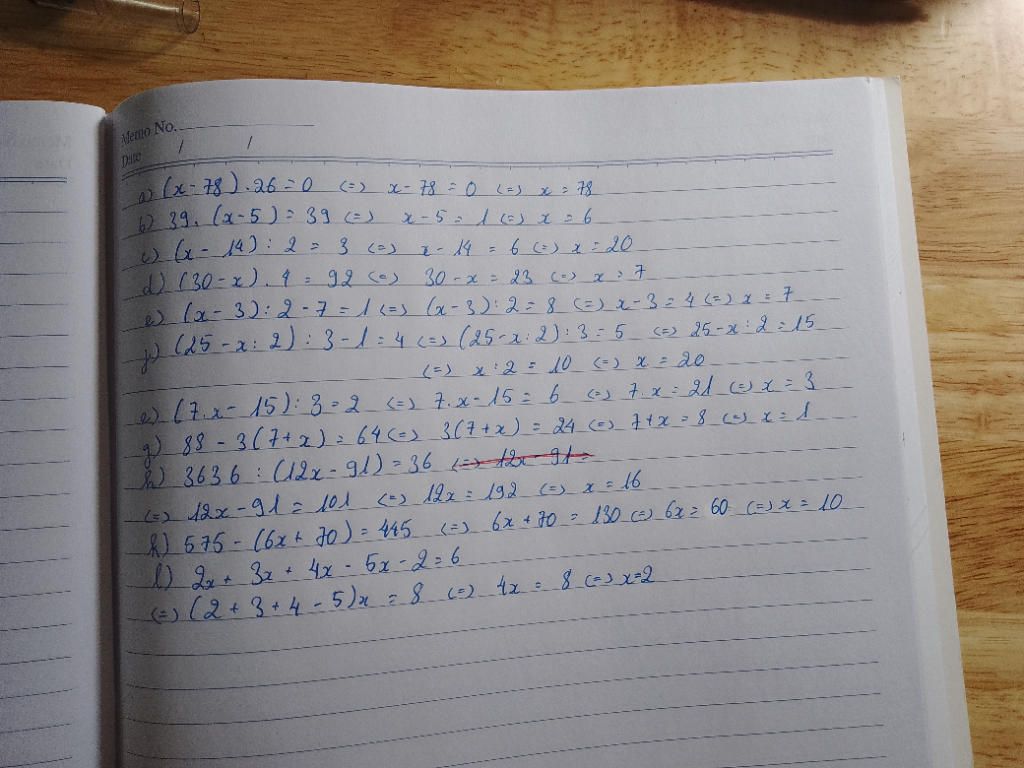 Memo No.
Date / /
a) (x-78).26=0 <=> x-78=0 <=> x=78
b) 39.(x-5)=39 <=> x-5=1 <=> x=6
c) (x-14):2=3 <=> x-14=6 <=> x=20
d) (30-x).4=92 <=> 30-x=23 <=> x=7
e) (x-3):2-7=1 <=> (x-3):2=8 <=> x-3=4 <=> x=7
f) (25-x:2):3-1=4 <=> (25-x:2):3=5 <=> 25-x:2=15
<=> x:2=10 <=> x=20
e) (7.x-15):3=2 <=> 7.x-15=6 <=> 7.x=21 <=> x=3
g) 88-3(7+x)=64 <=> 3(7+x)=24 <=> 7+x=8 <=> x=1
h) 3636:(12x-91)=36 <=> 12x-91=
<=> 12x-91=101 <=> 12x=192 <=> x=16
k) 575-(6x+70)=445 <=> 6x+70=130 <=> 6x=60 <=> x=10
l) 2x+3x+4x-5x-2=6
<=> (2+3+4-5)x=8 <=> 4x=8 <=> x=2